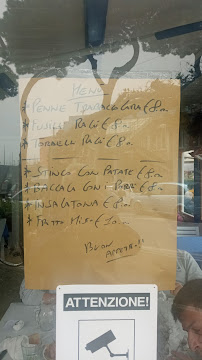 MENU
* PENNE € 8,00
* FUSILLI RAGÙ € 8,00
* RAGÙ € 8,00
* STINCO CON PATATE € 8,00
* BACCALÀ CON € 8,00
* INSALATONA € 8,00
* FRITTO MISTO €
BUON
APPETITO
ATTENZIONE!